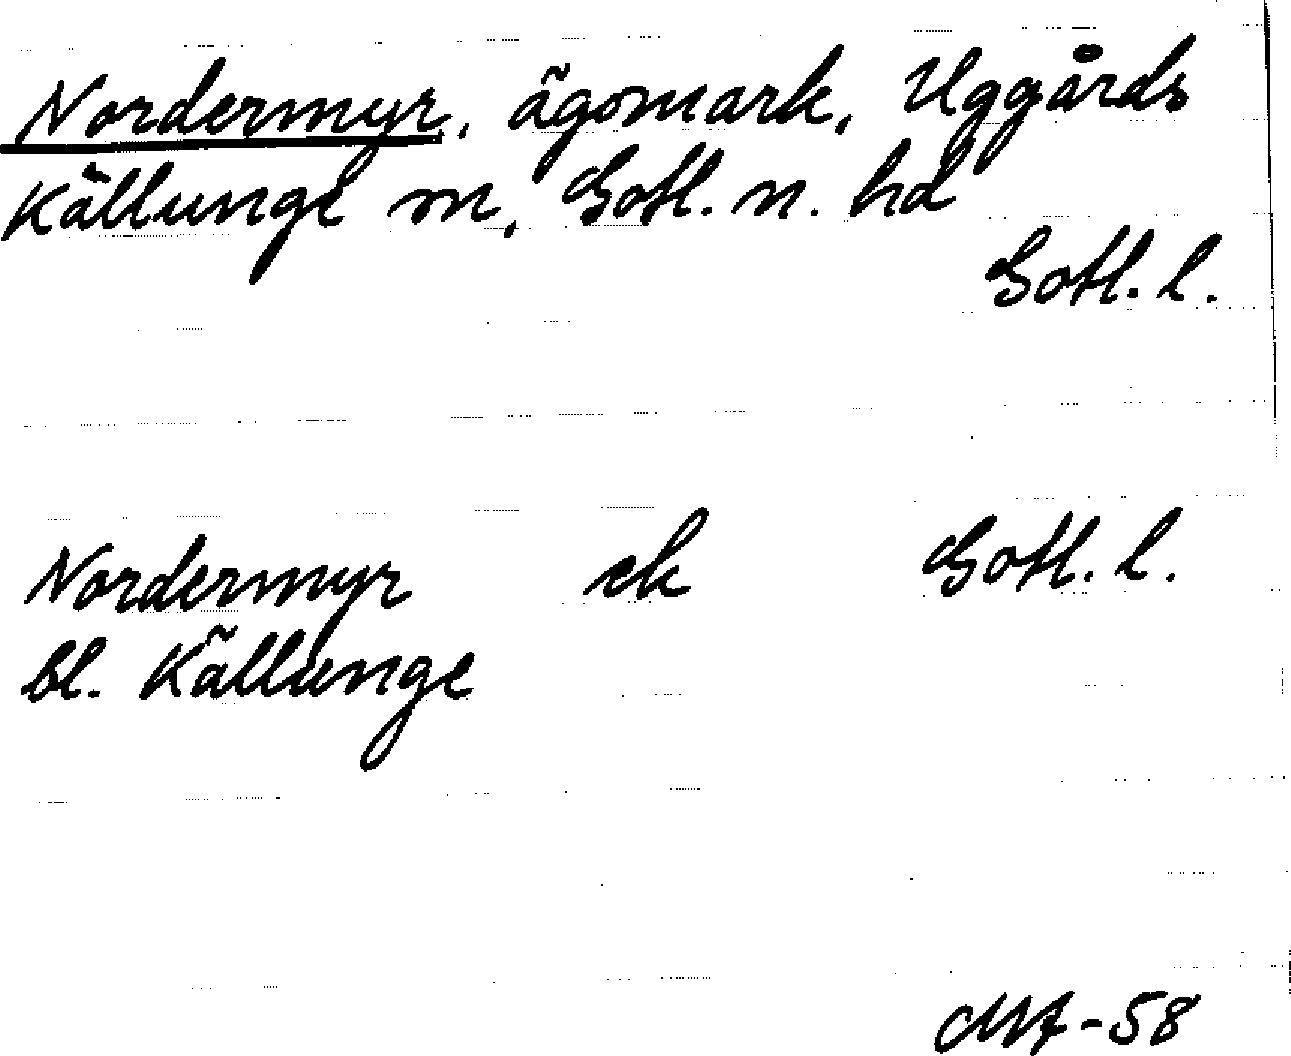 Nordermyr, ägomark, Uggårds
Källunge sn, Gotl. n. hd
Gotl. l.
Nordermyr ek Gotl. l.
bl. Källunge